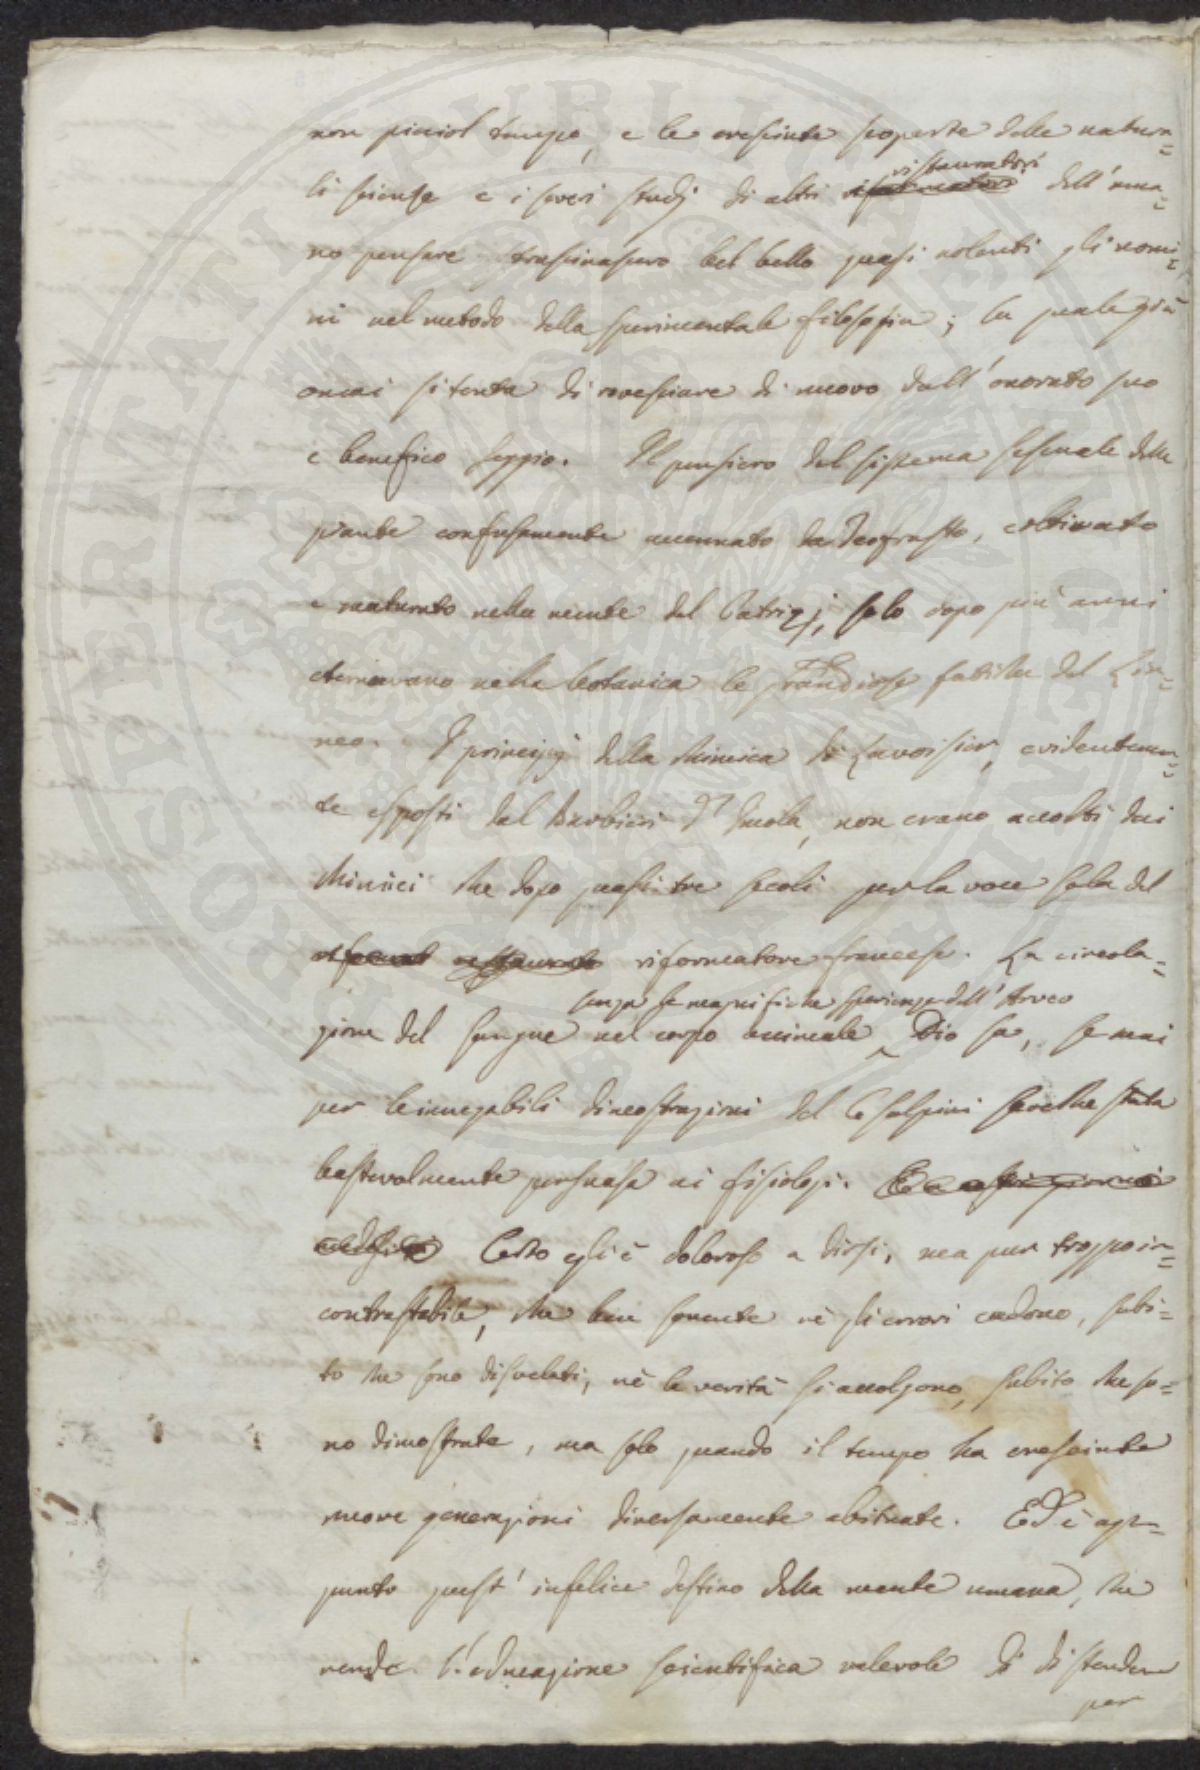 non picciol tempo, e le cresciute scoperte delle natura=
li scienze e i severi studj di altri riformatori ristauratori dell'uma=
no pensare trascinassero bel bello quasi nolenti gli uomi=
ni nel metodo della sperimentale filosofia; la quale già
omai si tenta di rovesciare di nuovo dall'onorato suo
e benefico seggio. Il pensiero del sistema sessuale delle
piante confusamente accennato da Teofrasto, coltivato
e maturato nella mente del Patrizj, solo dopo più anni
eternavano nella botanica le grandiose fatiche del Lin=
neo. I principj della chimica di Lavoisier, evidentemen=
te esposti dal Barbieri d' Imola, non erano accolti dai
chimici che dopo quasi tre secoli per la voce sola del
riformat restaurato riformatore francese. La circola=
senza le magnifiche sperienze dell'Arveo
zione del sangue nel corpo animale Dio sa, se mai
per le innegabili dimostrazioni del Cesalpini sarebbe stata
bastevolmente persuasa ai fisiologi.
Certo egli è doloroso a dirsi, ma pur troppo in=
contrastabile, che ben sovente nè gli errori cadono, subi=
to che sono disvelati, nè le verità si accolgono, subito che so=
no dimostrate, ma solo quando il tempo ha cresciute
nuove generazioni diversamente abituate. Ed è ap=
punto quest' infelice destino della mente umana, che
rende l'educazione scientifica valevole di distendere
per